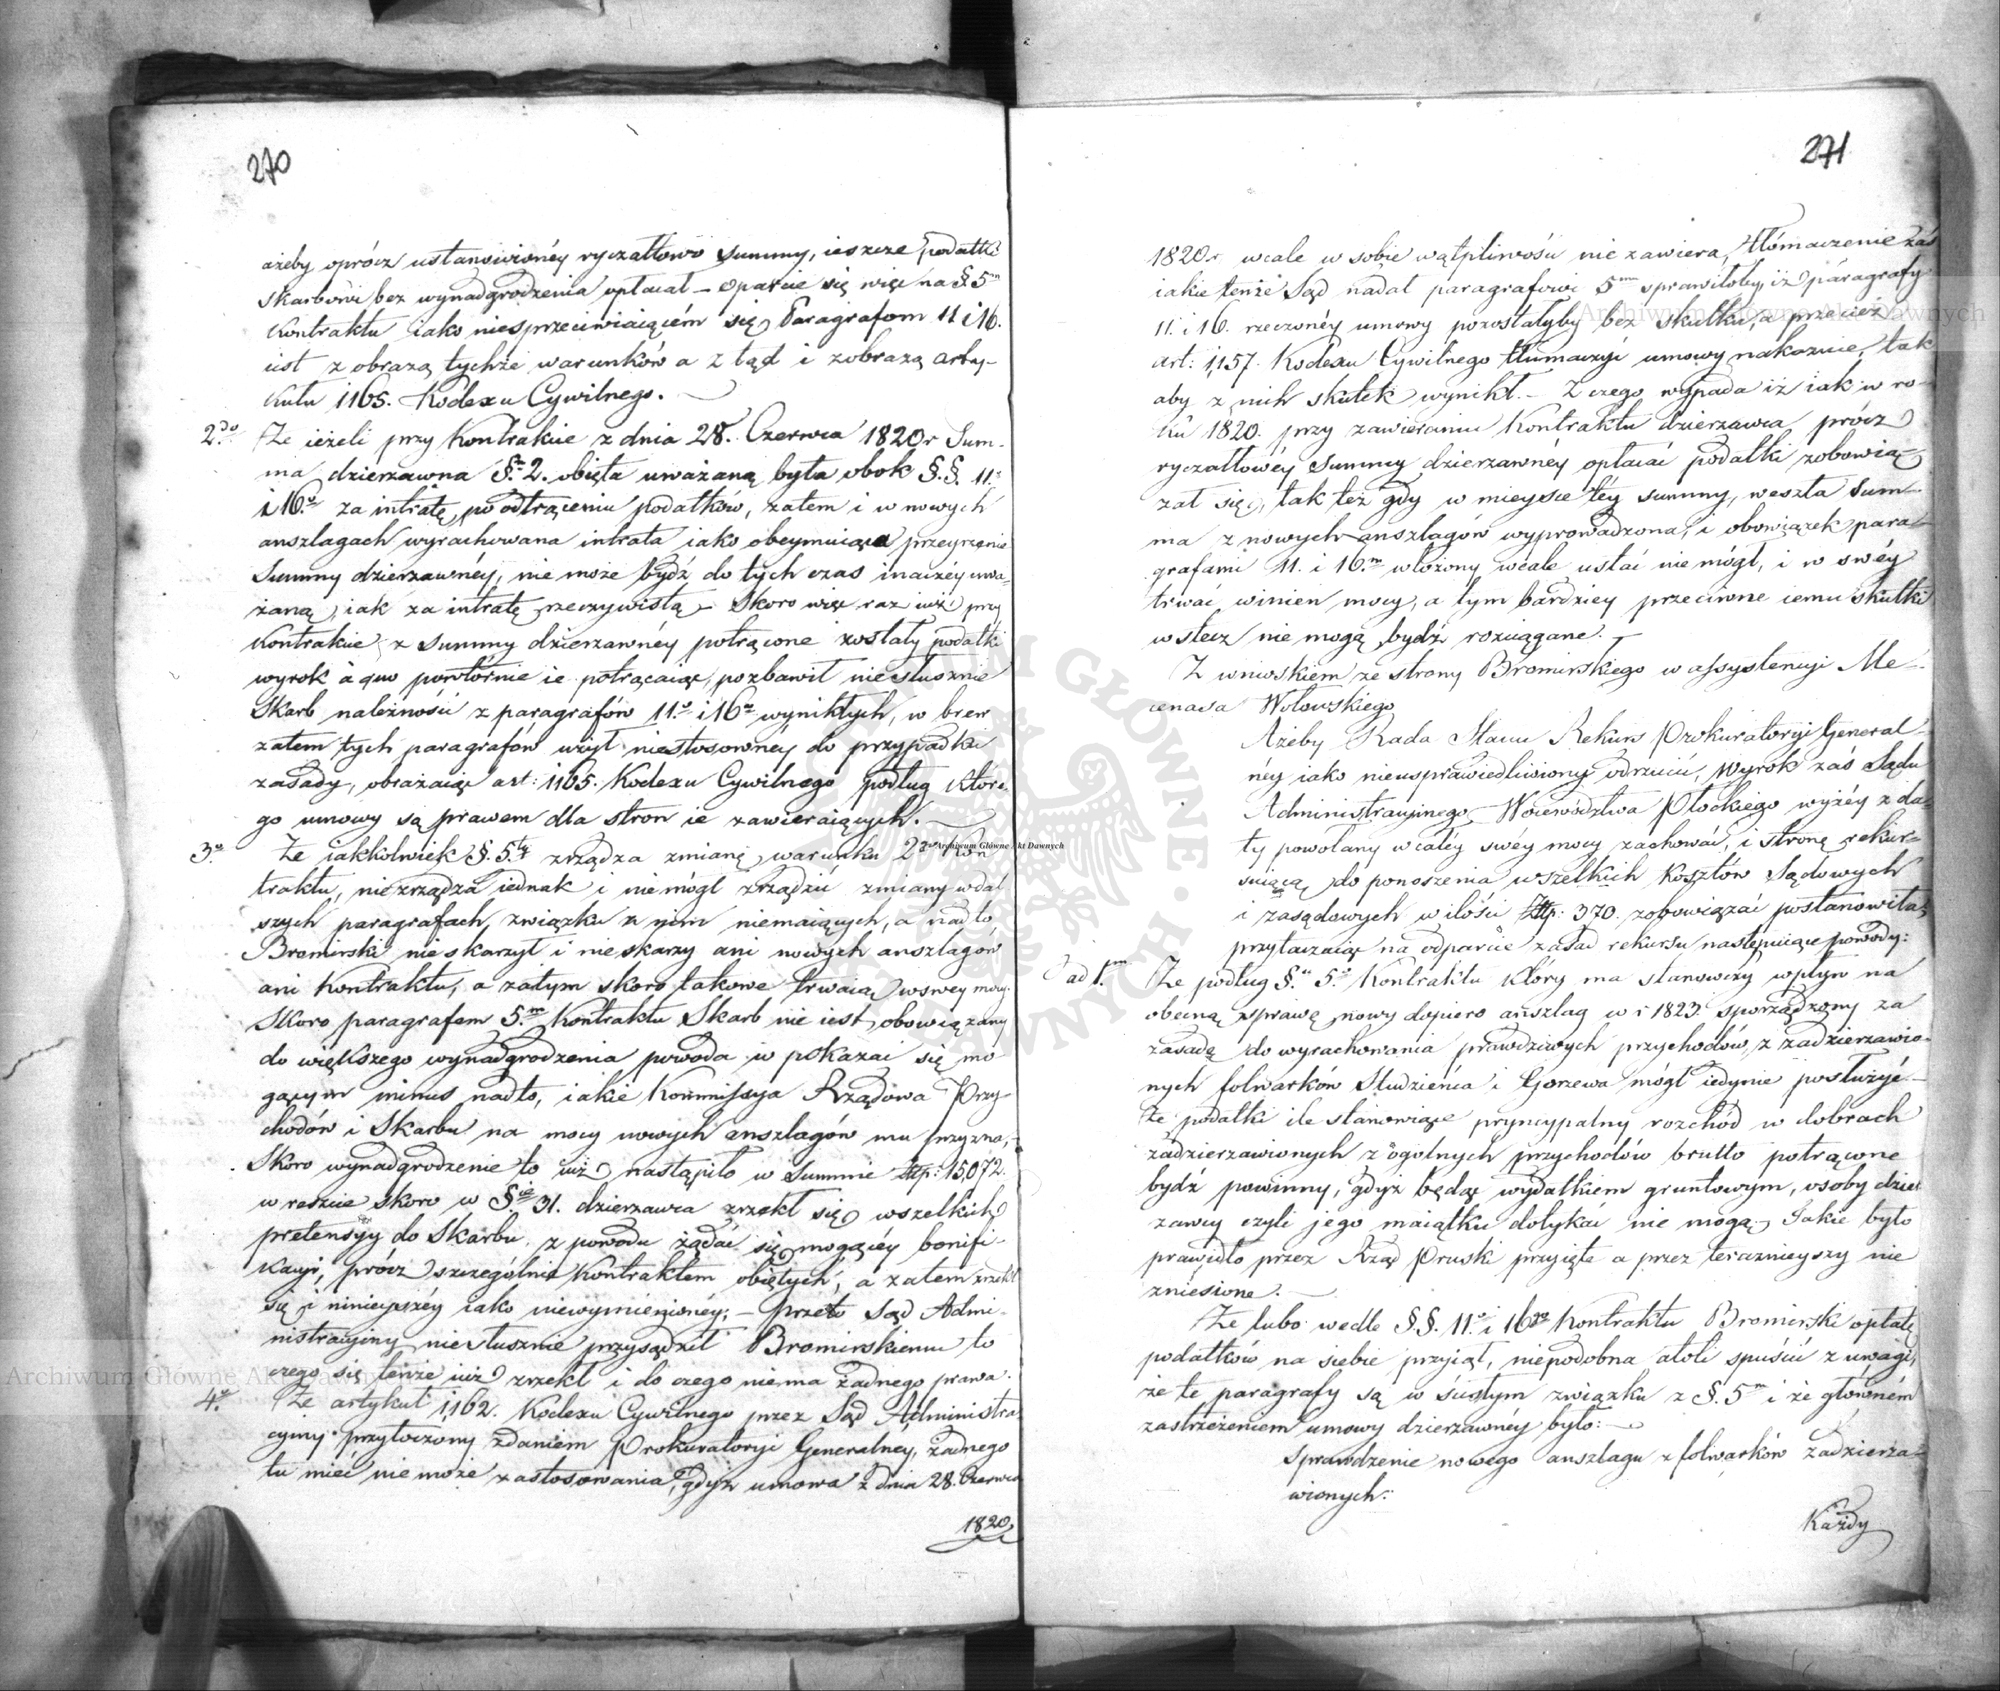 270
ażeby oprócz ustanowionéy ryczałtowo summy, ieszcze podatki
skarbowi bez wynadgrodzenia opłacał – oparcie się więc na §. 5m
Kontraktu iako niesprzeciwiaiącém się Paragrafom 11 i 16.
iest z obrazą tychże warunków a z tąd i z obrazą arty-
kułu 1165. Kodexu Cywilnego.
2do Że ieżeli przy Kontrakcie z dnia 28. Czerwca 1820 r Sum-
ma dzierzawna §. 2. obięta uważaną była obok §.§. 11.o
i 16.o za intratę po odtrąceniu podatków, zatem i w nowych
anszlagach wyrachowana intrata iako obeymuiąca przeyrzenie
Summy dzierzawnéy, nie może bydź do tych czas inaczéy uwa-
żaną, iak za intratę rzeczywistą – Skoro więc raz iuż przy
Kontrakcie z summy dzierzawnéy potrącone zostały podatki
wyrok à quo powtórnie ie potrącaiąc, pozbawił niesłusznie
Skarb należności z paragrafów 11.o i 16o wynikłych, w brew
zatem tych paragrafów użył niestosownéy do przypadku
zasady, obrażaiąc art: 1165. Kodexu Cywilnego podług które-
go umowy są prawem dla stron ie zawieraiących.
3.o Że iakkolwiek §. 5.ty zrządza zmianę warunku 2go Kon
traktu, nie zrządza iednak i nie mógł zrządzić zmiany w dal
szych paragrafach, związku z nim niemaiących, a nadto
Bromirski nie skarzył i nie skarzy ani nowych anszlagów
ani Kontraktu, a zatym skoro takowe trwaią w swey mocy.
Skoro paragrafem 5.m Kontraktu Skarb nie iest obowiązany
do większego wynadgrodzenia powoda w pokazać się mo
gącym minus nadto, iakie Kommissya Rządowa Przy-
chodów i Skarbu na mocy nowych anszlagów mu przyzna,
Skoro wynadgrodzenie to iuż nastąpiło w Summie Złp: 15,072.
w reszcie skoro w §ie 31. dzierzawca zrzekł się wszelkich
pretensyy do Skarbu z powodu żądać się mogącéy bonifi-
kacyi, prócz szczególnie Kontraktem obiętych, a zatem zrzekł
się i ninieyszéy iako niewymienionéy; – przeto Sąd Admi-
nistracyiny niesłusznie przysądził Bromirskiemu to
czego się tenże iuż zrzekł i do czego niema żadnego prawa.
4.o Że artykuł 1,162. Kodexu Cywilnego przez Sąd Administra-
cyiny przytoczony zdaniem Prokuratoryi Generalnéy, żadnego
tu mieć nie może zastosowania, gdyż umowa z dnia 28. Czerwca
1820
271
1820 r. wcale w sobie wątpliwości nie zawiera, tłómaczenie zaś
iakie tenże Sąd nadał paragrafowi 5mu sprawiłoby, iż paragrafy
11. i 16. rzeczonéy umowy pozostałyby bez skutku, a przecież
art: 1,157. Kodexu Cywilnego tłumaczyć umowy nakazuie, tak
aby z nich skutek wynikł. – Z czego wypada iż iak w ro-
ku 1820. przy zawieraniu Kontraktu dzierzawca prócz
ryczałtowéy Summy dzierzawnéy opłacać podatki zobowią-
zał się, tak też gdy w mieysce téy summy, weszła Sum-
ma z nowych anszlagów wyprowadzona, i obowiązek para-
grafami 11. i 16.m włożony wcale ustać nie mógł, i w swéy
trwać winien mocy, a tym bardziey przeciwne iemu skutki
wstecz nie mogą bydź rozciągane.
Z wnioskiem ze strony Bromirskiego w assystencyi Me-
cenasa Wołowskiego
Ażeby Rada Stanu Rekurs Prokuratoryi General-
néy iako nieusprawiedliwiony odrzucić, Wyrok zaś Sądu
Administracyinego Woiewództwa Płockiego wyżéy z da-
ty powołany w całéy swéy mocy zachować, i stronę rekur-
suiącą do ponoszenia wszelkich kosztów Sądowych
i zasądowych w ilości Złp: 370. zobowiązać postanowiła,
przytaczaiąc na odparcie zasad rekursu następuiące powody:
ad 1.m Że podług §.u 5.o Kontraktu który ma stanowczy wpływ na
obecną sprawę, nowy dopiero anszlag w r 1823. sporządzony za
zasadę do wyrachowania prawdziwych przychodów, z zadzierzawio-
nych folwarków Studzieńca i Gorzewa mógł iedynie posłużyć –
Że podatki ile stanowiące pryncypalny rozchód w dobrach
zadzierzawionych z ogólnych przychodów brutto potrącone
bydź powinny, gdyż będąc wydatkiem gruntowym, osoby dzier
zawcy czyli jego maiątku dotykać nie mogą – Jakie było
prawidło przez Rząd Pruski przyięte a przez teraznieyszy nie
zniesione.
Że lubo wedle §§. 11.o i 16go Kontraktu Bromirski opłatę
podatków na siebie przyiął, niepodobna atoli spuścić z uwagi,
że te paragrafy są w ścisłym związku z §. 5m i że głównem
zastrzeżeniem umowy dzierzawnéy było:
Sprawdzenie nowego anszlagu z folwarków zadzierza-
wionych:
Każdy
Archiwum Główne Akt Dawnych